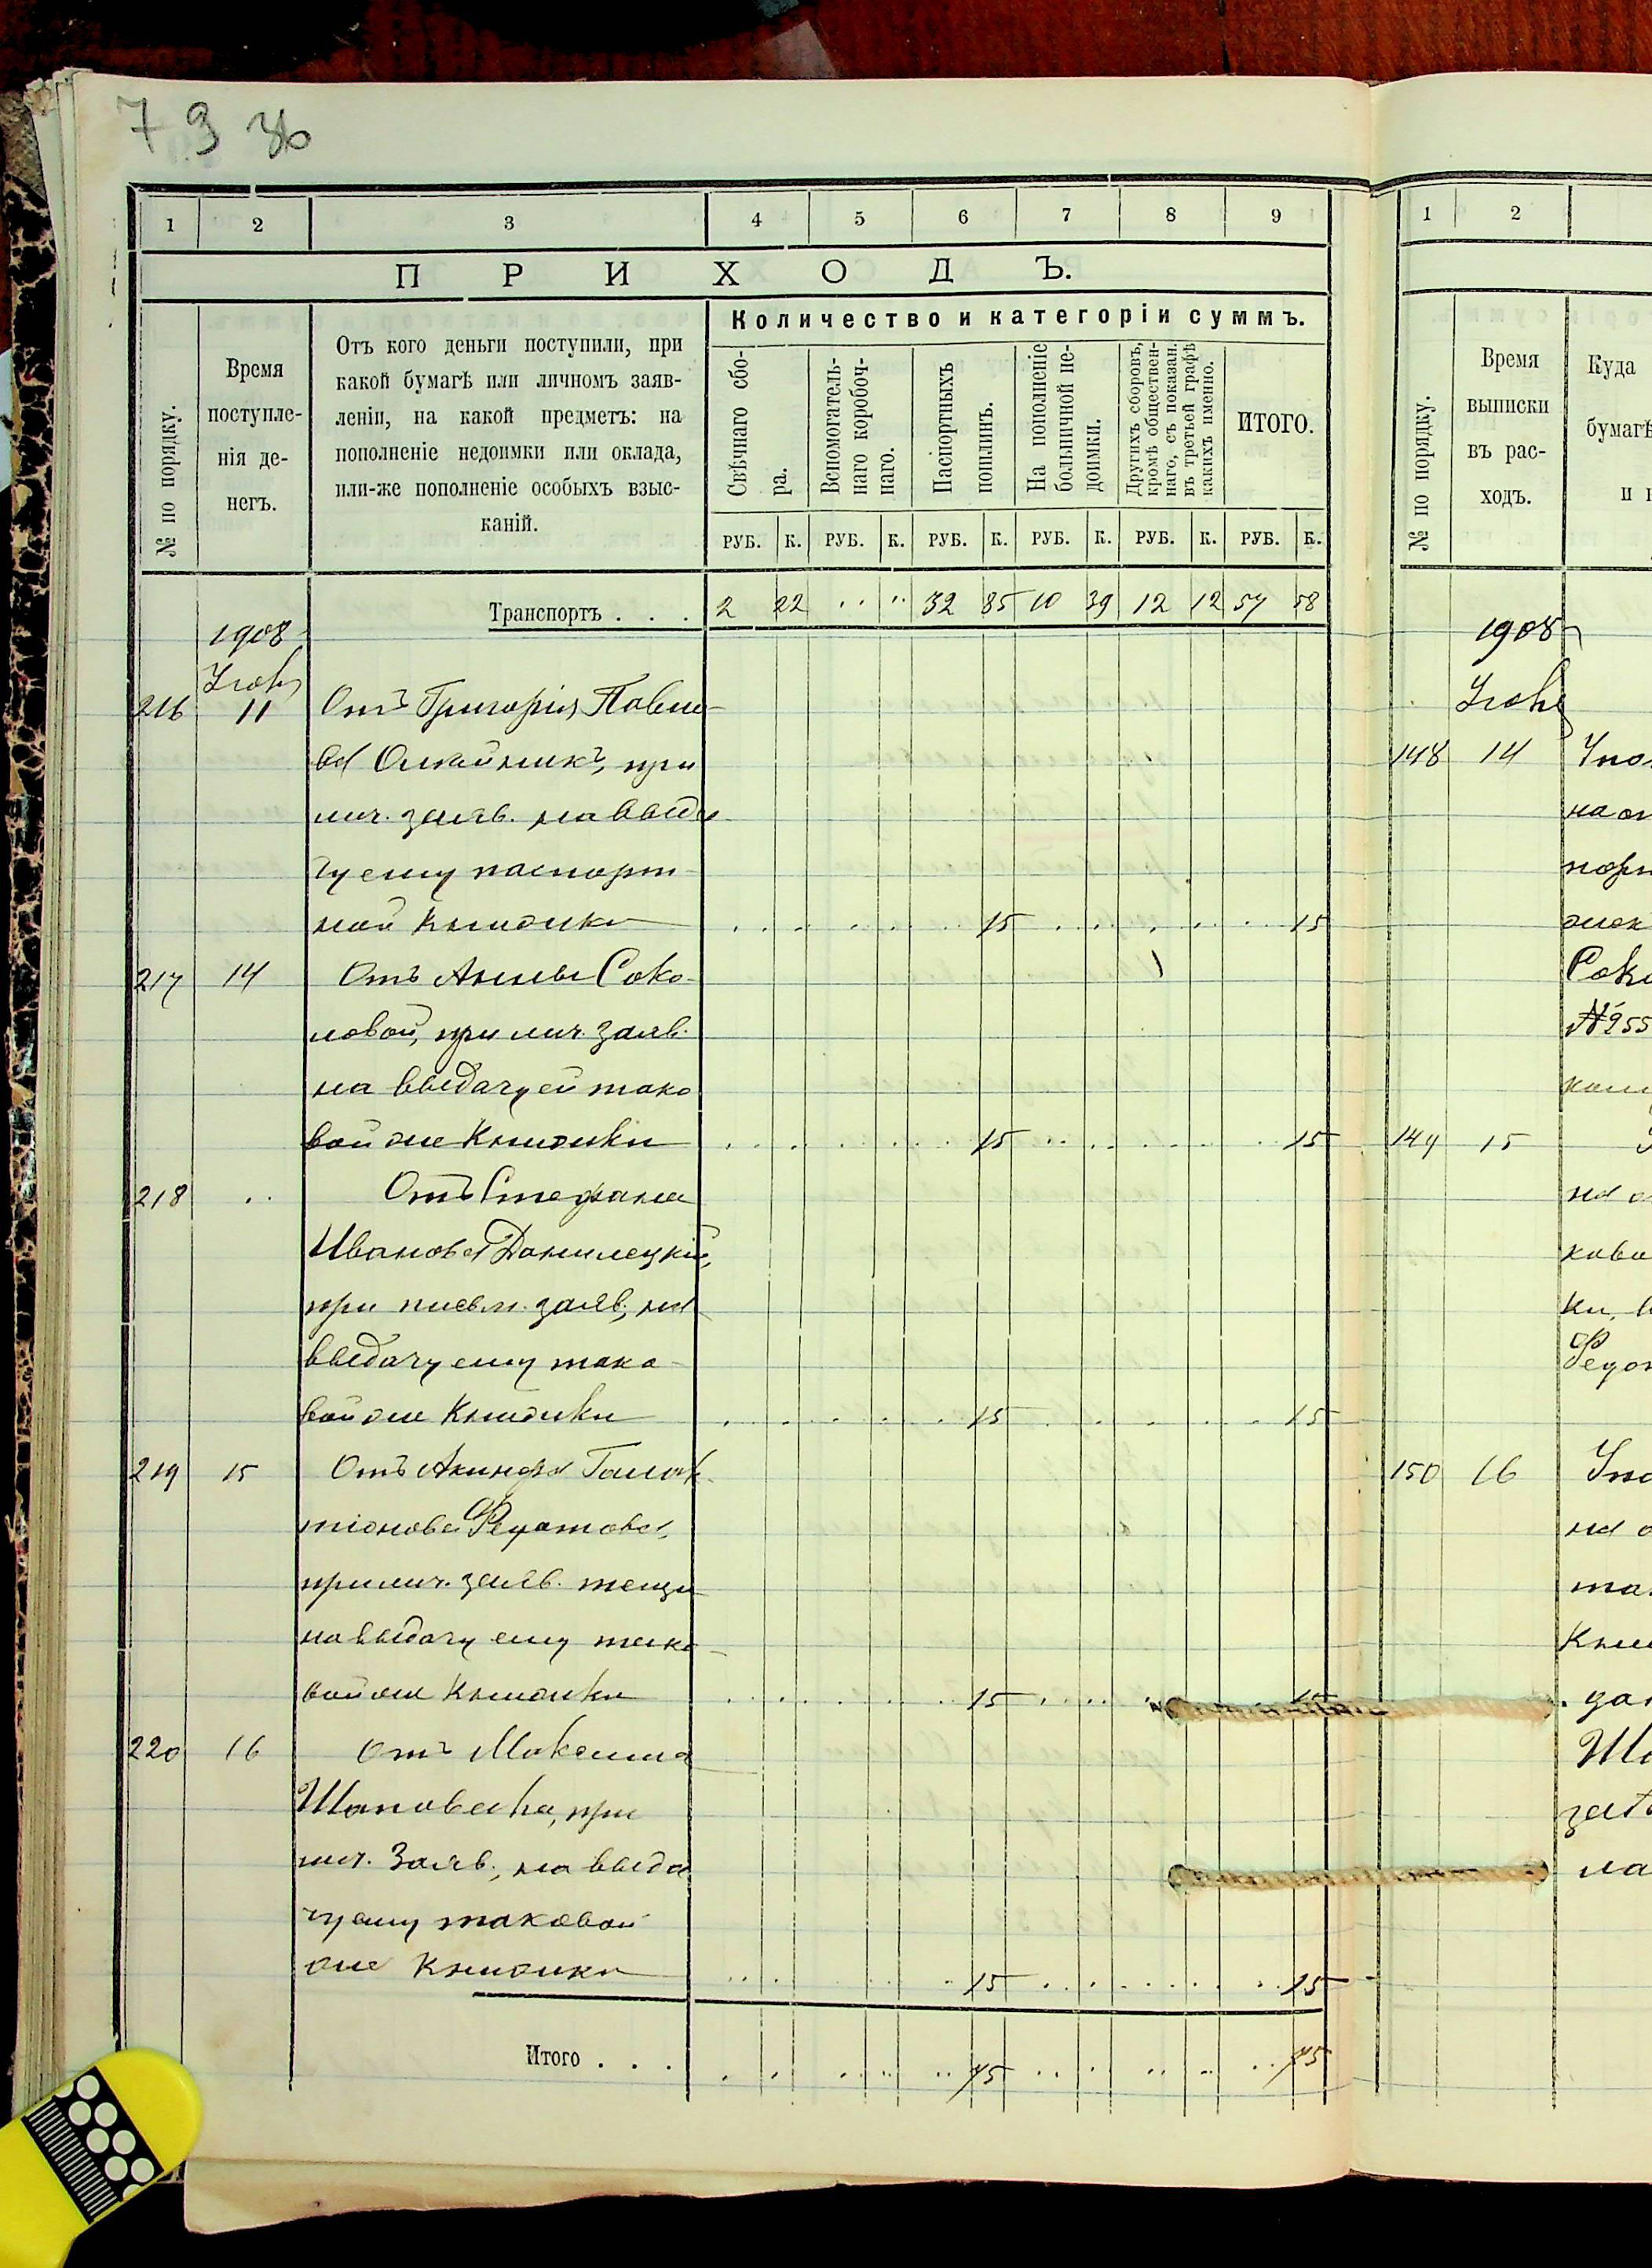 7 9 36
1 2 3 4 5 6 7 8 9
ПРИХОДЪ.
№ по порядку.
Время
поступле-
нія де-
негъ.
Отъ кого деньги поступили, при
какой бумагѣ или личномъ заяв-
леніи, на какой предметъ: на
пополненіе недоимки или оклада,
или-же пополненіе особыхъ взыс-
каній.
Количество и категоріи суммъ.
Свѣчнаго сбо-
ра.
Вспомогатель-
наго коробоч-
наго.
Паспортныхъ
пошлинъ.
На пополненіе
больничной не-
доимки.
Другихъ сборовъ,
кромѣ обществен-
наго, съ показан.
въ третьей графѣ
какихъ именно.
ИТОГО.
РУБ. К. РУБ. К. РУБ. К. РУБ. К. РУБ. К. РУБ. К.
Транспортъ . . . 2 22 " " 32 85 10 39 12 12 57 58
1908
Іюня
216 11 Отъ Григорія Павло-
ва Олейникъ, при
лич. заяв. на выда
чу ему паспорт
ной книжки 15 15
217 14 Отъ Анны Соко-
ловой, при лич. заяв.
на выдачу ей тако
вой же книжки 15 15
218 . . Отъ Стефана
Иванова Данилецкій,
при письм. заяв., на
выдачу ему тако-
вой же книжки 15 15
219 15 Отъ Акинфа Галак
тіонова Федотова,
при лич. заяв. тещи
на выдачу ему тако-
вой же книжки 15 15
220 16 Отъ Максима
Шаповала, при
лич. заяв., на выда
чу ему таковой
же книжки 15 15
Итого . . . 75 75
1 2
№ по порядку.
Время
выписки
въ рас-
ходъ.
Куда
бумагѣ
и
1908
Іюня
148 14
149 15
150 16